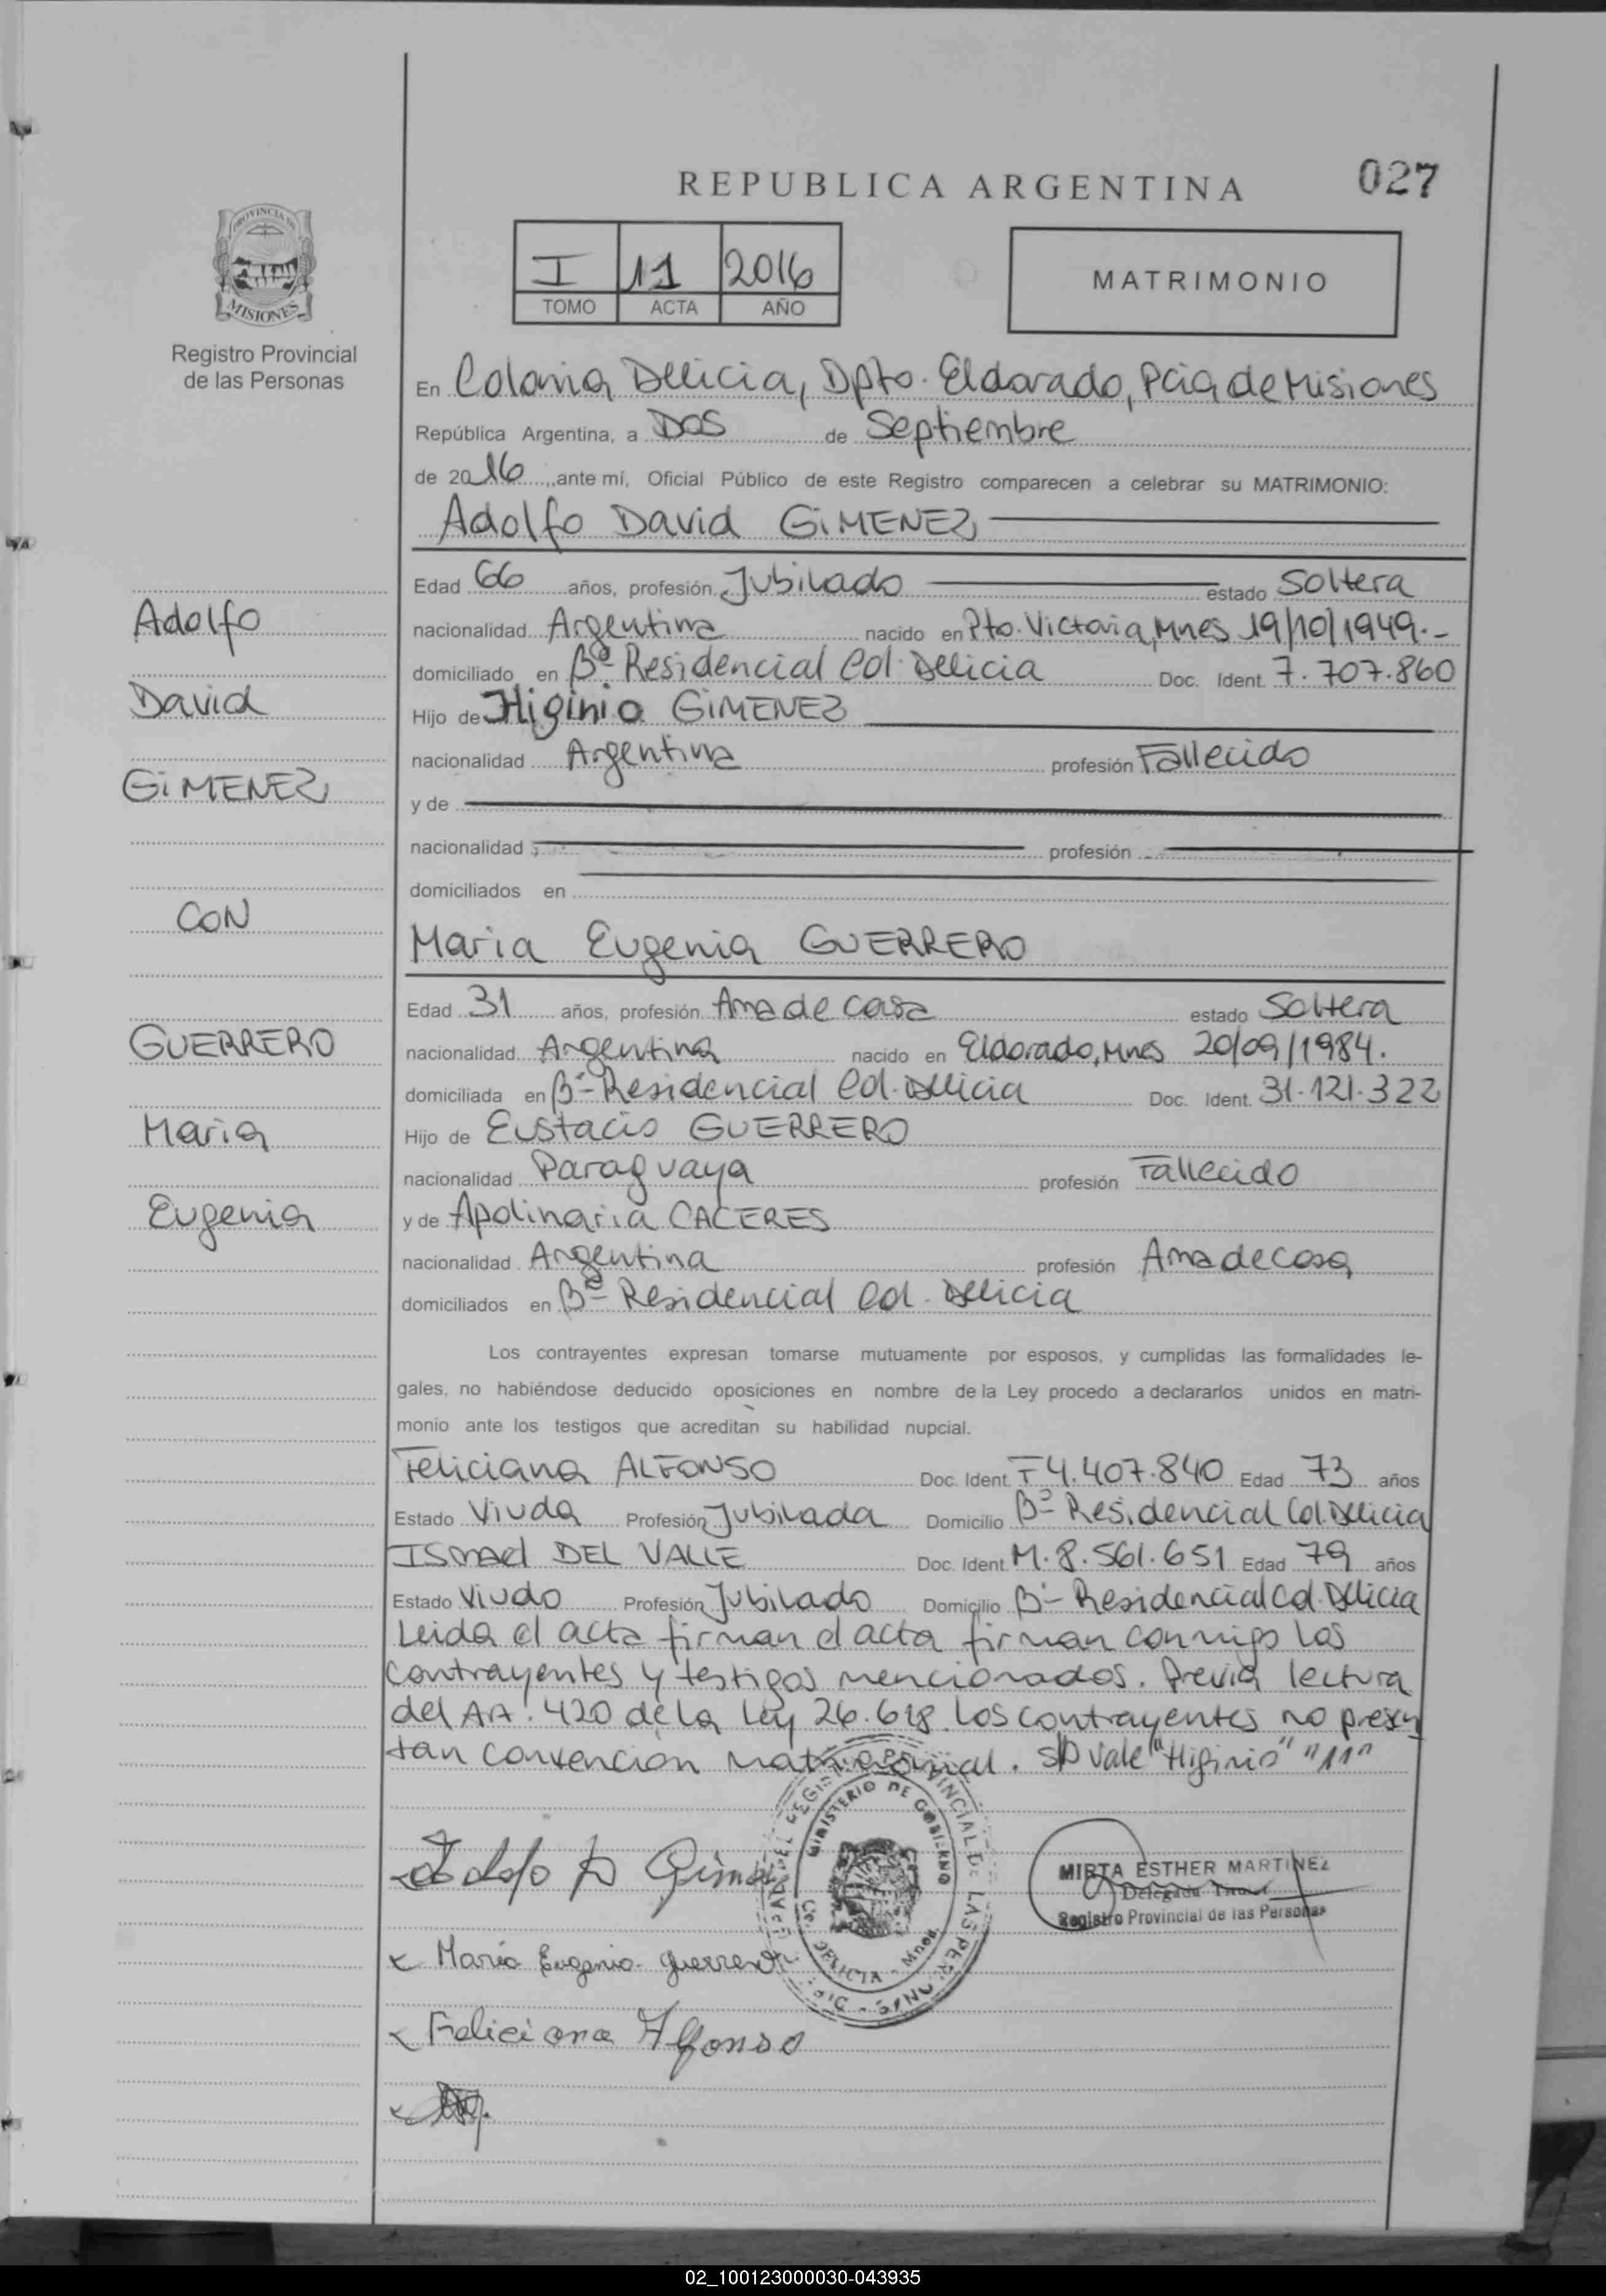 REPUBLICA ARGENTINA
027
PROVINCIA DE
MISIONES
Registro Provincial
de las Personas
I 11 2016
TOMO ACTA AÑO
MATRIMONIO
En Colonia Delicia, Dpto. Eldorado, Pcia de Misiones
República Argentina, a Dos de Septiembre
de 2016, ante mí, Oficial Público de este Registro comparecen a celebrar su MATRIMONIO:
Adolfo David GiMENEZ
Edad 66 años, profesión Jubilado estado Soltera
nacionalidad Argentina nacido en Pto. Victoria, Mnes 19/10/1949.-
domiciliado en Bº Residencial Col. Delicia Doc. Ident. 7.707.860
Hijo de Higinio GiMENEZ
nacionalidad Argentina profesión Fallecido
y de
nacionalidad profesión
domiciliados en
Maria Eugenia GUERRERO
Edad 31 años, profesión Ama de casa estado Soltera
nacionalidad Argentina nacido en Eldorado, Mnes 20/09/1984.
domiciliada en Bº Residencial Col. Delicia Doc. Ident. 31.121.322
Hijo de Eustacio GUERRERO
nacionalidad Paraguaya profesión Fallecido
y de Apolinaria CACERES
nacionalidad Argentina profesión Ama de casa
domiciliados en Bº Residencial Col. Delicia
Adolfo
David
GiMENEZ
CON
GUERRERO
Maria
Eugenia
Los contrayentes expresan tomarse mutuamente por esposos, y cumplidas las formalidades le-
gales, no habiéndose deducido oposiciones en nombre de la Ley procedo a declararlos unidos en matri-
monio ante los testigos que acreditan su habilidad nupcial.
Feliciana ALFONSO Doc. Ident. F 4.407.840 Edad 73 años
Estado Viuda Profesión Jubilada Domicilio Bº Residencial Col. Delicia
ISmael DEL VALLE Doc. Ident. M. 8.561.651 Edad 79 años
Estado Viudo Profesión Jubilado Domicilio Bº Residencial Col. Delicia
Leida el acta firman el acta firman conmigo los
contrayentes y testigos mencionados. Previa lectura
del Art. 420 de la Ley 26.618 Los contrayentes no presen
tan convencion matrimonial. S/D Vale "Higinio" "11"
MINISTERIO DE GOBIERNO
DELICIA - Mnes.
MIRTA ESTHER MARTINEZ
Delegada Titular
Registro Provincial de las Personas
Adolfo D Gimenez
Maria Eugenia Guerrero
Feliciana Alfonso
02_100123000030-043935